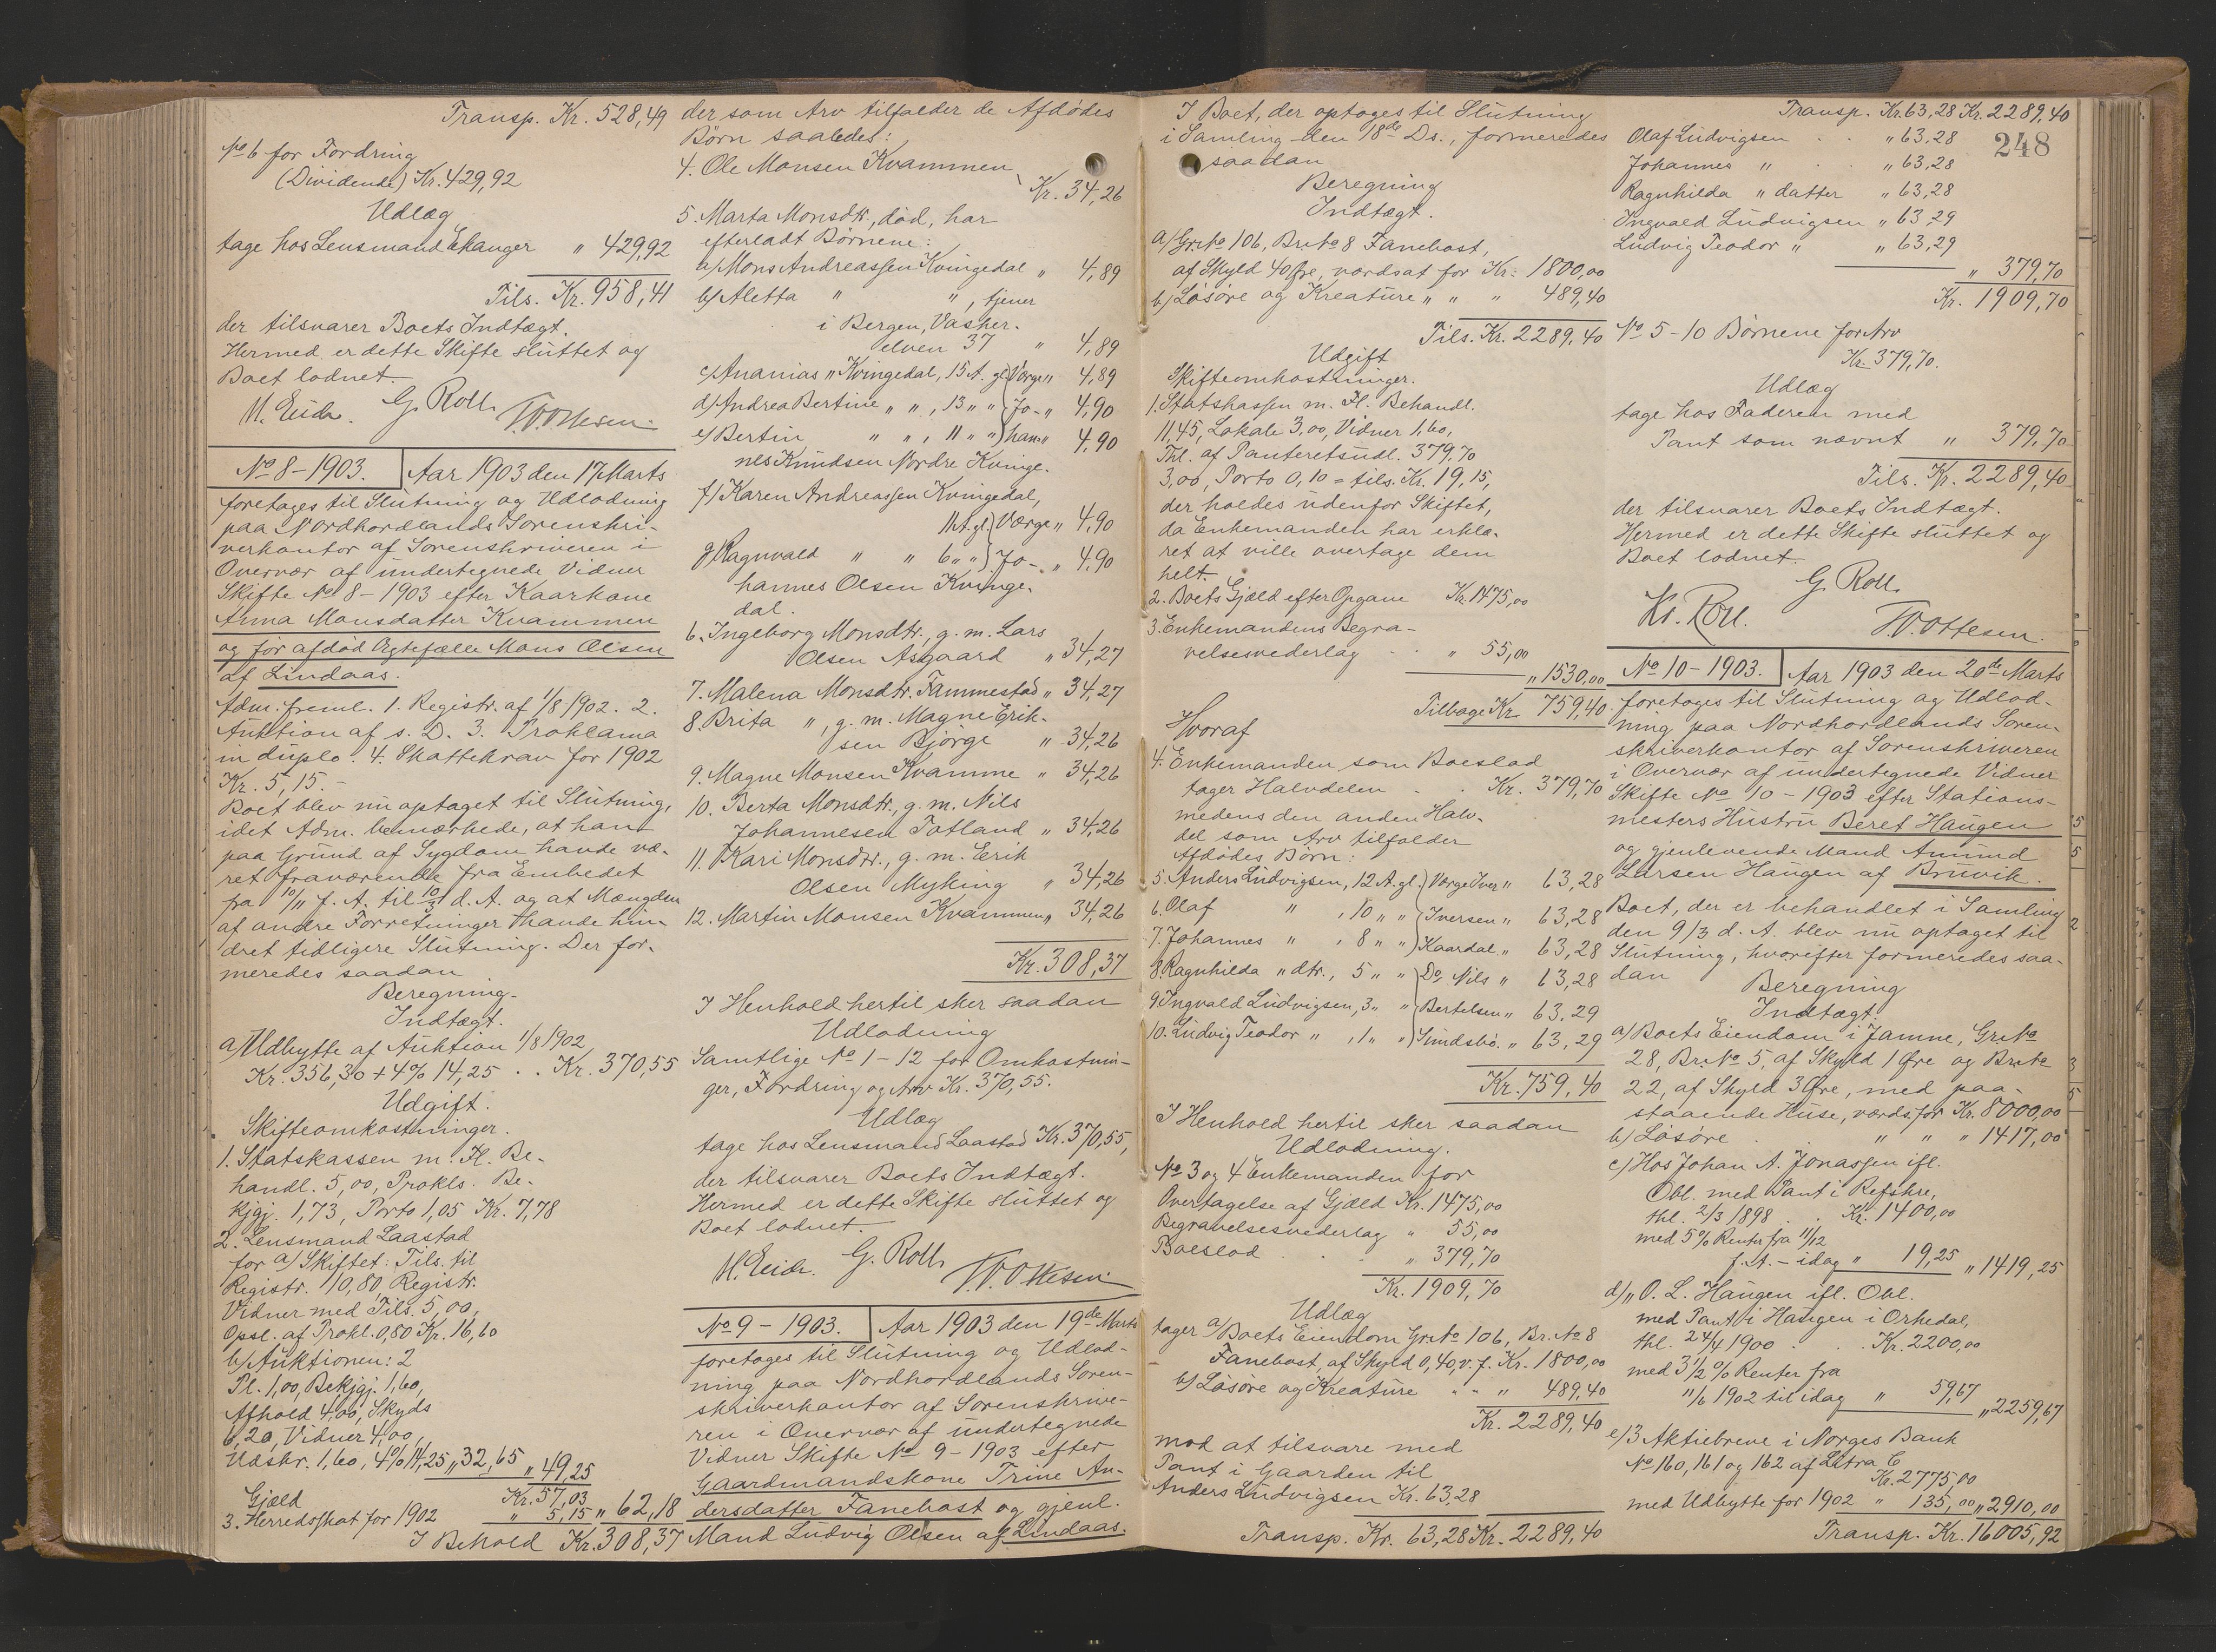 Transp. Kr. 528,49
No 6 for Fordring
(Dividende) Kr. 429,92
Udlæg
tage hos Lensmand Ekanger " 429,92
Tils. Kr. 958,41
der tilsvarer Boets Indtægt.
Hermed er dette Skifte sluttet og
Boet lodnet.
M. Eide. G. Roll. T. Ottesen.
No 8 - 1903. Aar 1903 den 17 Marts
foretoges til Slutning og Udlodning
paa Nordhordlands Sorenskri-
verkontor af Sorenskriveren i
Overvær af undertegnede Vidner
Skifte No 8 - 1903 efter Kaarkone
Anna Monsdatter Kvammen
og før afdød Ægtefælle Mons Olsen
af Lindaas.
Adm. freml. 1. Registr. af 1/8 1902. 2.
Auktion af s. D. 3. Proklama
in duplo. 4. Skattekrav for 1902
Kr. 5,15.-
Boet blev nu optaget til Slutning,
idet Adm. bemærkede, at han
paa Grund af Sygdom havde væ-
ret fraværende fra Embedet
fra 10/11 f. A. til 10/3 d. A. og at Mængden
af andre Forretninger havde hin-
dret tidligere Slutning. Der for-
meredes saadan
Beregning.
Indtægt.
a/ Udbytte af Auktion 1/8 1902
Kr. 356,30 + 4% 14,25 . . Kr. 370,55
Udgift.
Skifteomkostninger.
1. Statskassen m. Fl. Be-
handl. 5,00, Prokls. Be-
kjgj. 1,73, Porto 1,05 Kr. 7,78
2. Lensmand Laastad
for a/ Skiftet: Tils. til
Registr. 10,80, Registr.
Vidner med Tils. 5,00,
Opsl. af Prokl. 0,80 Kr. 16,60
b/ Auktionen: 2
Pl. 1,00, Bekjgj. 1,60,
Afhold 4,00, Skyds
6,20, Vidner 4,00,
Udskr. 1,60, 4% 14,25 " 32,65 " 49,25
Kr. 57,03
Gjæld
3. Herredsskat for 1902 " 5,15 " 62,18
I Behold Kr. 308,37
der som Arv tilfalder de Afdødes
Børn saaledes:
4. Ole Monsen Kvammen
Kr. 34,26
5. Marta Monsdtr., død, har
efterladt Børnene:
a/ Mons Andreassen Kvingedal " 4,89
b/ Aletta " ", tjener
i Bergen, Vasker-
elven 37 " 4,89
c/ Ananias " Kvingedal, 15 A. gl. Værge " 4,89
d/ Andrea Bertine " ", 13 " " Jo- " 4,90
e/ Bertin " ", 11 " " han- " 4,90
nes Knudsen Nordre Kvinge-
f/ Karen Andreassen Kvingedal,
11 A. gl. Værge " 4,90
g/ Ragnvald " " 6 " " Jo- " 4,90
hannes Olsen Kvinge-
dal.
6. Ingeborg Monsdtr., g. m. Lars
Olsen Asgaard " 34,27
7. Malena Monsdtr. Fammestad " 34,27
8. Brita ", g. m. Magne Erik-
sen Bjørge " 34,26
9. Magne Monsen Kvamme " 34,26
10. Berta Monsdtr., g. m. Nils
Johannesen Totland " 34,26
11. Kari Monsdtr., g. m. Erik
Olsen Myking " 34,26
12. Martin Monsen Kvammen " 34,26
Kr. 308,37
I Henhold hertil sker saadan
Udlodning
Samtlige No 1-12 for Omkostnin-
ger, Fordring og Arv Kr. 370,55.
Udlæg
tage hos Lensmand Laastad Kr. 370,55,
der tilsvarer Boets Indtægt.
Hermed er dette Skifte sluttet og
Boet lodnet.
M. Eide. G. Roll. T. Ottesen.
No 9 - 1903. Aar 1903 den 19de Marts
foretoges til Slutning og Udlod-
ning paa Nordhordlands Soren-
skriverkontor af Sorenskrive-
ren i Overvær af undertegnede
Vidner Skifte No 9 - 1903 efter
Gaardmandskone Trine An-
dersdatter Fanebost og gjenl.
Mand Ludvig Olsen af Lindaas.
I Boet, der optoges til Slutning
i Samling den 18de Ds., formeredes
saadan
Beregning
Indtægt.
a/ Gr. No 106, Br. No 8 Fanebost,
af Skyld 40 Øre, værdsat for Kr. 1800,00
b/ Løsøre og Kreature " " " 489,40
Tils. Kr. 2289,40
Udgift
Skifteomkostninger.
1. Statskassen m. Fl. Behandl.
11,45, Lokale 3,00, Vidner 1,60,
Thl. af Panteretsudl. 379,70
3,00, Porto 0,10 = tils. Kr. 19,15,
der holdes udenfor Skiftet,
da Enkemanden har erklæ-
ret at ville overtage dem
helt.
2. Boets Gjæld efter Opgave Kr. 1475,00
3. Enkemandens Begra-
velsesvederlag . . " 55,00
" 1530,00
Tilbage Kr. 759,40.
Hvoraf
4. Enkemanden som Boeslod
tager Halvdelen . . Kr. 379,70
medens den anden Halv-
del som Arv tilfalder
Afdødes Børn:
5. Anders Ludvigsen, 12 A. gl. Værge Iver " 63,28
6. Olaf " , 10 " " Iversen " 63,28
7. Johannes " , 8 " " Kaardal. " 63,28
8. Ragnhilda " dtr., 5 " " Do, Nils " 63,28
9. Ingvald Ludvigsen, 3 " " Bertelsen " 63,29
10. Ludvig Teodor ", 1 " " Sundsbø. " 63,29
Kr. 759,40
I Henhold hertil sker saadan
Udlodning.
No 3 og 4 Enkemanden for
Overtagelse af Gjæld Kr. 1475,00
Begravelsesvederlag " 55,00
Boeslod . . " 379,70
Kr. 1909,70
Udlæg
tager a/ Boets Eiendom Gr. No 106, Br. No 8
Fanebost, af Skyld 0,40, v. f. Kr. 1800,00
b/ Løsøre og Kreature " " " 489,40
Kr. 2289,40
mod at tilsvare med
Pant i Gaarden til
Anders Ludvigsen Kr. 63,28
Transp. Kr. 63,28 Kr. 2289,40
Transp. Kr. 63,28 Kr. 2289,40
248
Olaf Ludvigsen . . " 63,28
Johannes " . . " 63,28
Ragnhilda " datter " 63,28
Ingvald Ludvigsen " 63,29
Ludvig Teodor " " 63,29
" 379,70
Kr. 1909,70
No 5-10 Børnene for Arv
Kr. 379,70.
Udlæg
tage hos Faderen med
Pant som nævnt " 379,70
Tils. Kr. 2289,40
der tilsvarer Boets Indtægt.
Hermed er dette Skifte sluttet og
Boet lodnet.
G. Roll.
Kr. Roll. T. Ottesen.
No 10 - 1903. Aar 1903 den 20de Marts
foretoges til Slutning og Udlod-
ning paa Nordhordlands Soren-
skriverkontor af Sorenskriveren
i Overvær af undertegnede Vidner
Skifte No 10 - 1903 efter Stations-
mesters Hustru Beret Haugen
og gjenlevende Mand Amund
Larsen Haugen af Bruvik.
Boet, der er behandlet i Samling
den 9/3 d. A. blev nu optaget til
Slutning, hvorefter formeredes saa-
dan
Beregning
Indtægt.
a/ Boets Eiendom i Jamne, Gr. No
28, Br. No 5, af Skyld 1 Øre og Br. No
22, af Skyld 3 Øre, med paa-
staaende Huse, værds. for Kr. 8000,00
b/ Løsøre . . " " " 1417,00
c/ Hos Johan A. Jonassen ifl.
Obl. med Pant i Refskre,
thl. 2/3 1898 . . Kr. 1400,00
med 5% Renter fra 11/12
f. A. - idag " 19,25 " 1419,25
d/ " O. L. Haugen ifl. Obl.
med Pant i Haugen i Orkedal,
thl. 24/4 1900 . . Kr. 2200,00
med 3 1/2 % Renter fra
11/6 1902 til idag " 59,67 " 2259,67
e/ 3 Aktiebreve i Norges Bank
No 160, 161 og 162 af Litra C
Kr. 2775,00
med Udbytte for 1902 " 135,00 " 2910,00
Transp. Kr. 16005,92